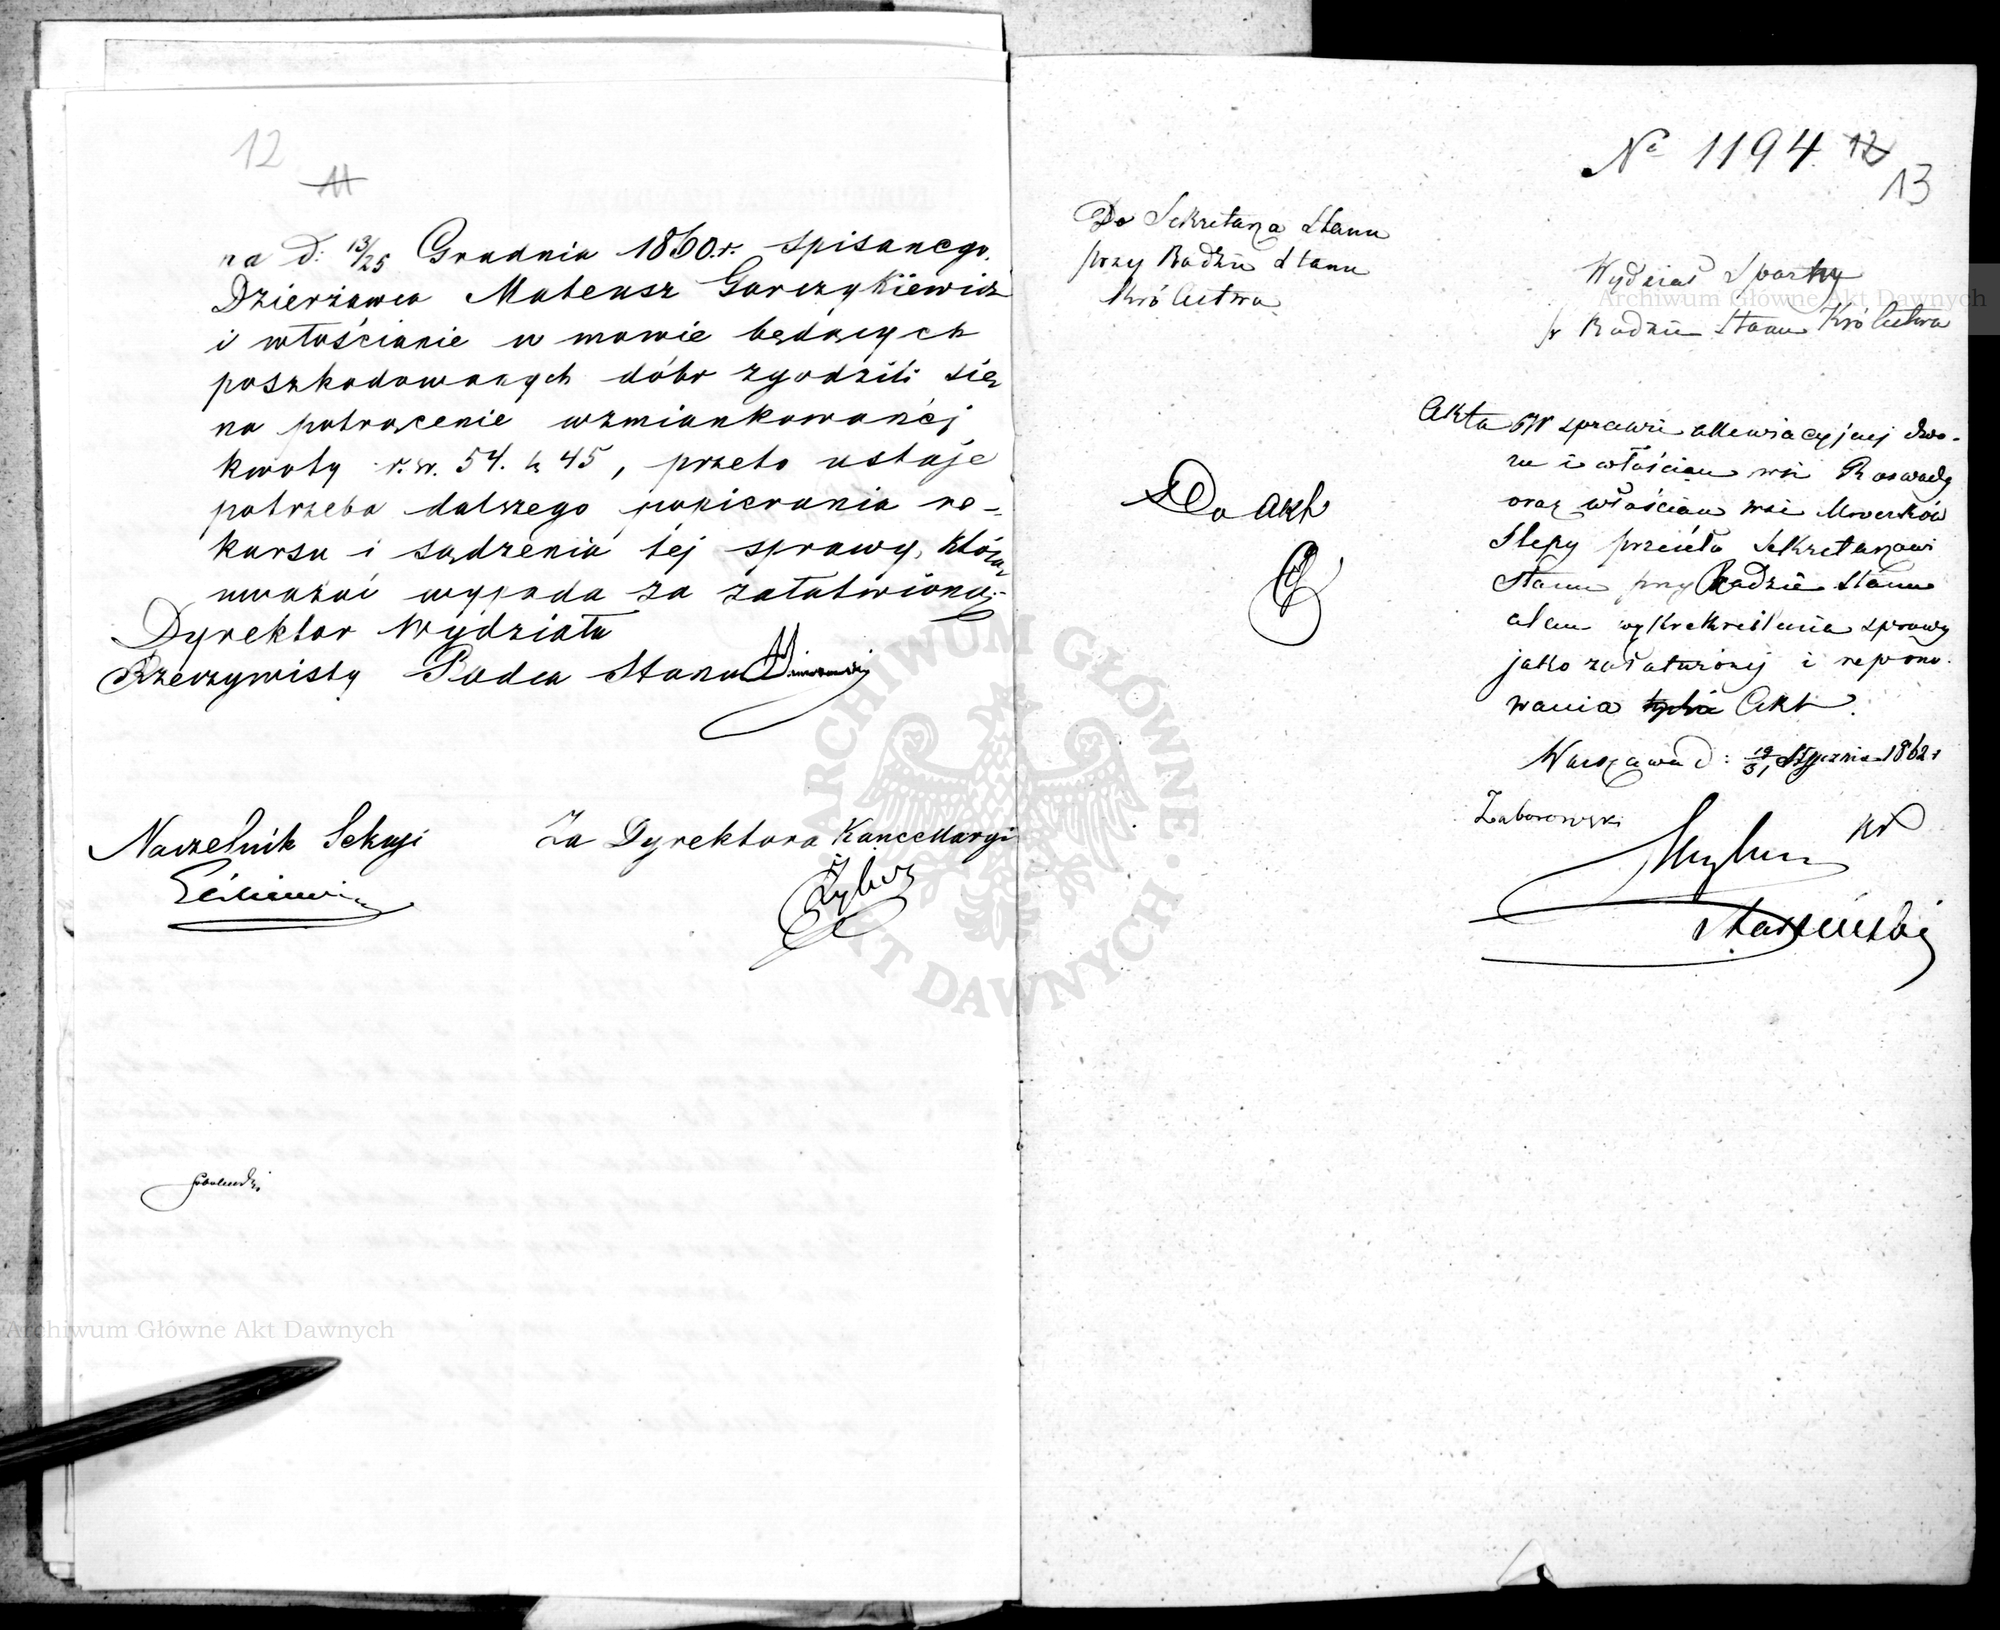 12
11
na d: 13/25 Grudnia 1860.r. spisanego.
Dzierżawca Mateusz Gorczykiewicz
i włościanie w mowie będących
poszkodowanych dóbr zgodzili się
na potrącenie wzmiankowanéj
kwoty r.sr. 54. k 45, przeto ustaje
potrzeba dalszego popierania re-
kursu i sądzenia téj sprawy, którą
uważać wypada za załatwioną.-
Dyrektor Wydziału
Rzeczywisty Radca Stanu
Naczelnik Sekcyi
Za Dyrektora Kancellaryi
Sobolewski
Archiwum Główne Akt Dawnych
№ 1194.
12
13
Do Sekretarza Stanu
przy Radzie Stanu
Królestwa
Wydział Sporny
w Radzie Stanu Królestwa
Archiwum Główne Akt Dawnych
Akta w sprawie allewiacyjnej dwo-
ru i włościan wsi
oraz włościan wsi
Ślepy przesyła Sekretarzowi
Stanu przy Radzie Stanu
celem wykreślenia sprawy
jako załatwionej i repono-
wania tychże Akt.
Do Akt
Warszawa d: 19/31 Stycznia 1862 r
Zaborowski
ARCHIWUM GŁÓWNE AKT DAWNYCH